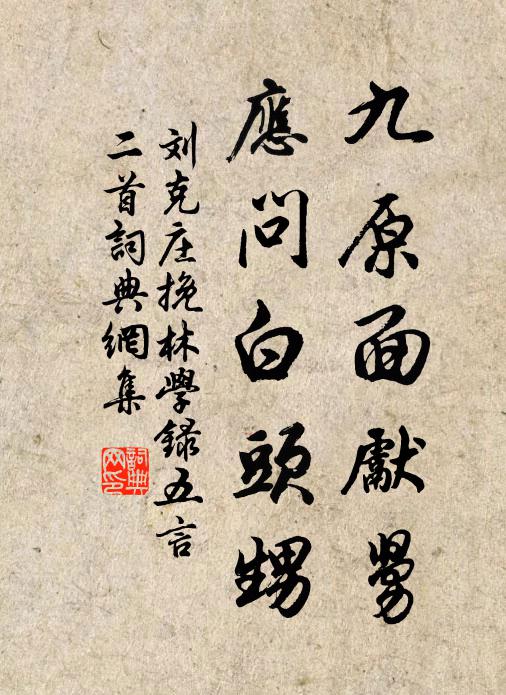 九原面獻舅
應問白頭甥
刘克庄挽林學錄五言
二首詞典網集
詞典
网印